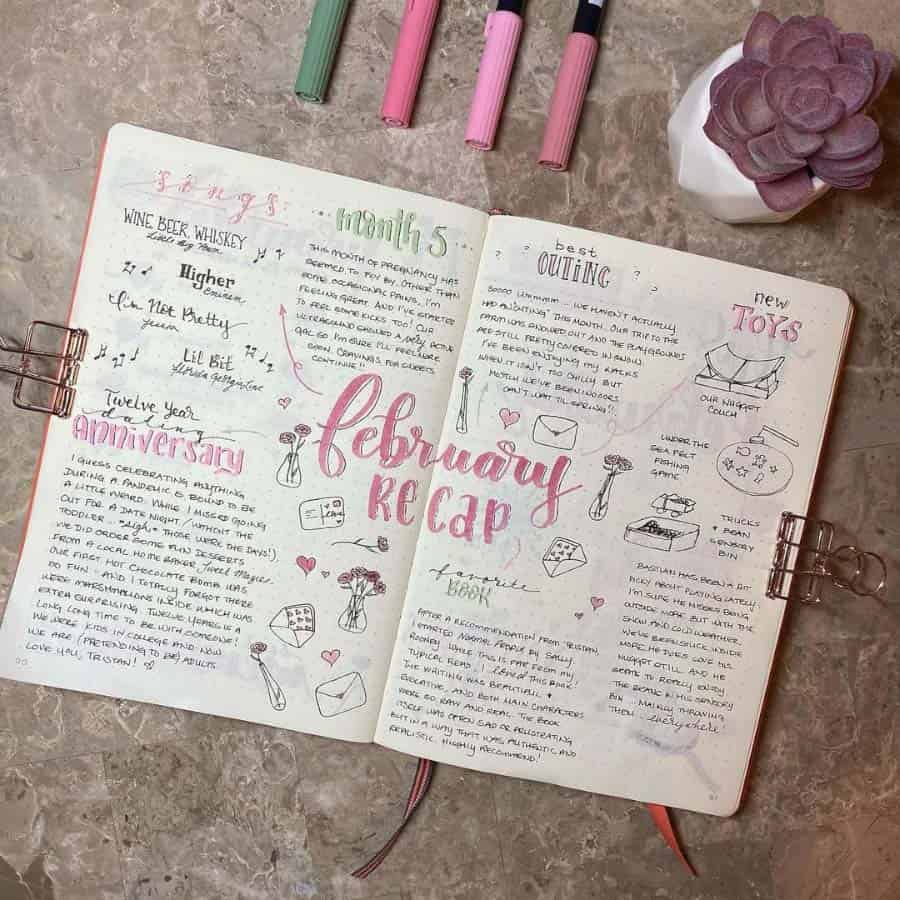 songs
WINE, BEER, WHISKEY
Little Big Town
Higher
Eminem
I'm Not Pretty
Jessia
Lil Bit
Florida Georgia Line
Twelve Year
dating
anniversary
I GUESS CELEBRATING ANYTHING
DURING A PANDEMIC IS BOUND TO BE
A LITTLE WEIRD. WHILE I MISSED GOING
OUT FOR A DATE NIGHT (WITHOUT THE
TODDLER... *sigh* THOSE WERE THE DAYS!)
WE DID ORDER SOME FUN DESSERTS
FROM A LOCAL HOME BAKER, Sweet Magic.
OUR FIRST HOT CHOCOLATE BOMB WAS
SO FUN - AND I TOTALLY FORGOT THERE
WERE MARSHMALLOWS INSIDE WHICH WAS
EXTRA SURPRISING. TWELVE YEARS IS A
LONG LONG TIME TO BE WITH SOMEONE!
WE WERE KIDS IN COLLEGE AND NOW
WE ARE (PRETENDING TO BE) ADULTS.
LOVE YOU, TRISTAN!
month 5
THIS MONTH OF PREGNANCY HAS
SEEMED TO FLY BY. OTHER THAN
SOME OCCASIONAL PAINS, I'M
FEELING GREAT. AND I'VE STARTED
TO FEEL SOME KICKS TOO! OUR
ULTRASOUND SHOWED A very ACTIVE
GAL SO I'M SURE I'LL FEEL MORE
SOON. CRAVINGS FOR SWEETS
CONTINUE!!
february
RECAP
best
OUTING
SOOOO UMMMM... WE HAVEN'T ACTUALLY
HAD AN "OUTING" THIS MONTH. OUR TRIP TO THE
FARM WAS SNOWED OUT AND THE PLAYGROUNDS
ARE STILL PRETTY COVERED IN SNOW.
I'VE BEEN ENJOYING MY WALKS
WHEN IT ISN'T TOO CHILLY BUT
MOSTLY WE'VE BEEN INDOORS.
CAN'T WAIT TIL SPRING!!
favorite
BOOK
AFTER A RECOMMENDATION FROM TRISTAN,
I STARTED NORMAL PEOPLE BY SALLY
ROONEY. WHILE THIS IS FAR FROM MY
TYPICAL READ, I loved THIS BOOK!
THE WRITING WAS BEAUTIFUL +
EVOCATIVE, AND BOTH MAIN CHARACTERS
WERE SO RAW AND REAL. THE BOOK
ITSELF WAS OFTEN SAD OR FRUSTRATING
BUT IN A WAY THAT WAS AUTHENTIC AND
REALISTIC. HIGHLY RECOMMEND!
new
TOYS
OUR NUGGET
COUCH
UNDER THE
SEA FELT
FISHING
GAME
TRUCKS
+ BEAN
SENSORY
BIN
BASTIAN HAS BEEN A BIT
PICKY ABOUT PLAYING LATELY.
I'M SURE HE MISSES BEING
OUTSIDE MORE BUT WITH THE
SNOW AND COLD WEATHER,
WE'VE BEEN STUCK INSIDE
MORE. HE DOES LOVE HIS
NUGGET STILL AND HE
SEEMS TO REALLY ENJOY
THE BEANS IN HIS SENSORY
BIN... MAINLY THROWING
THEM... everywhere!